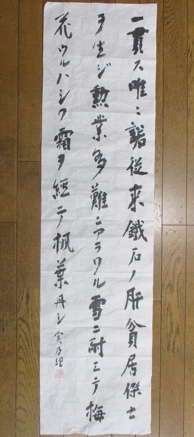 一貫ス唯〻諾従来鐵石ノ肝貧居傑士
ヲ生ジ勲業多難ニアラワル雪ニ耐エテ梅
花ウルハシク霜ヲ経テ楓葉丹シ